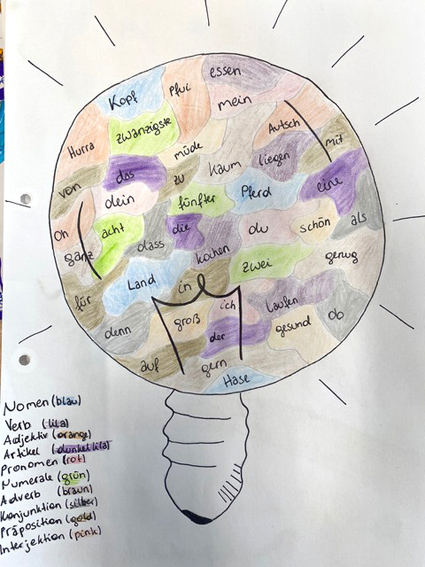 Kopf Pfui essen
Hurra zwanzigste mein Autsch mit
von das müde kaum liegen eine
dein zu fünfter Pferd
Oh acht dass die kochen du schön als
ganz
Land in zwei genug
für
denn groß ich Laufen gesund do
der
auf gern
Hase
Nomen (blau)
Verb (lila)
Adjektiv (orange)
Artikel (dunkellila)
Pronomen (rot)
Numerale (grün)
Adverb (braun)
Konjunktion (silber)
Präposition (gold)
Interjektion (pink)